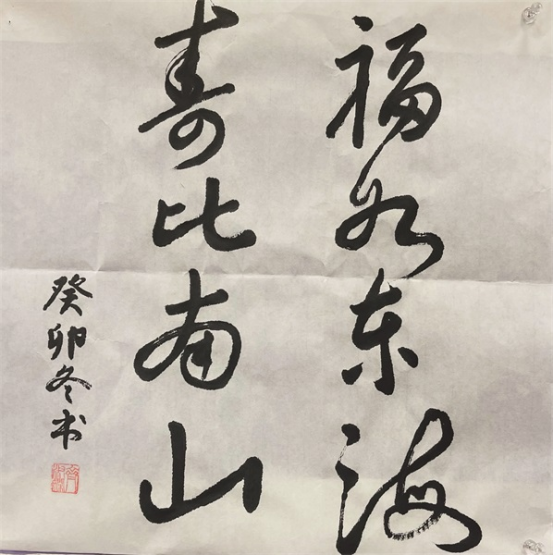 福如东海
寿比南山
癸卯冬书